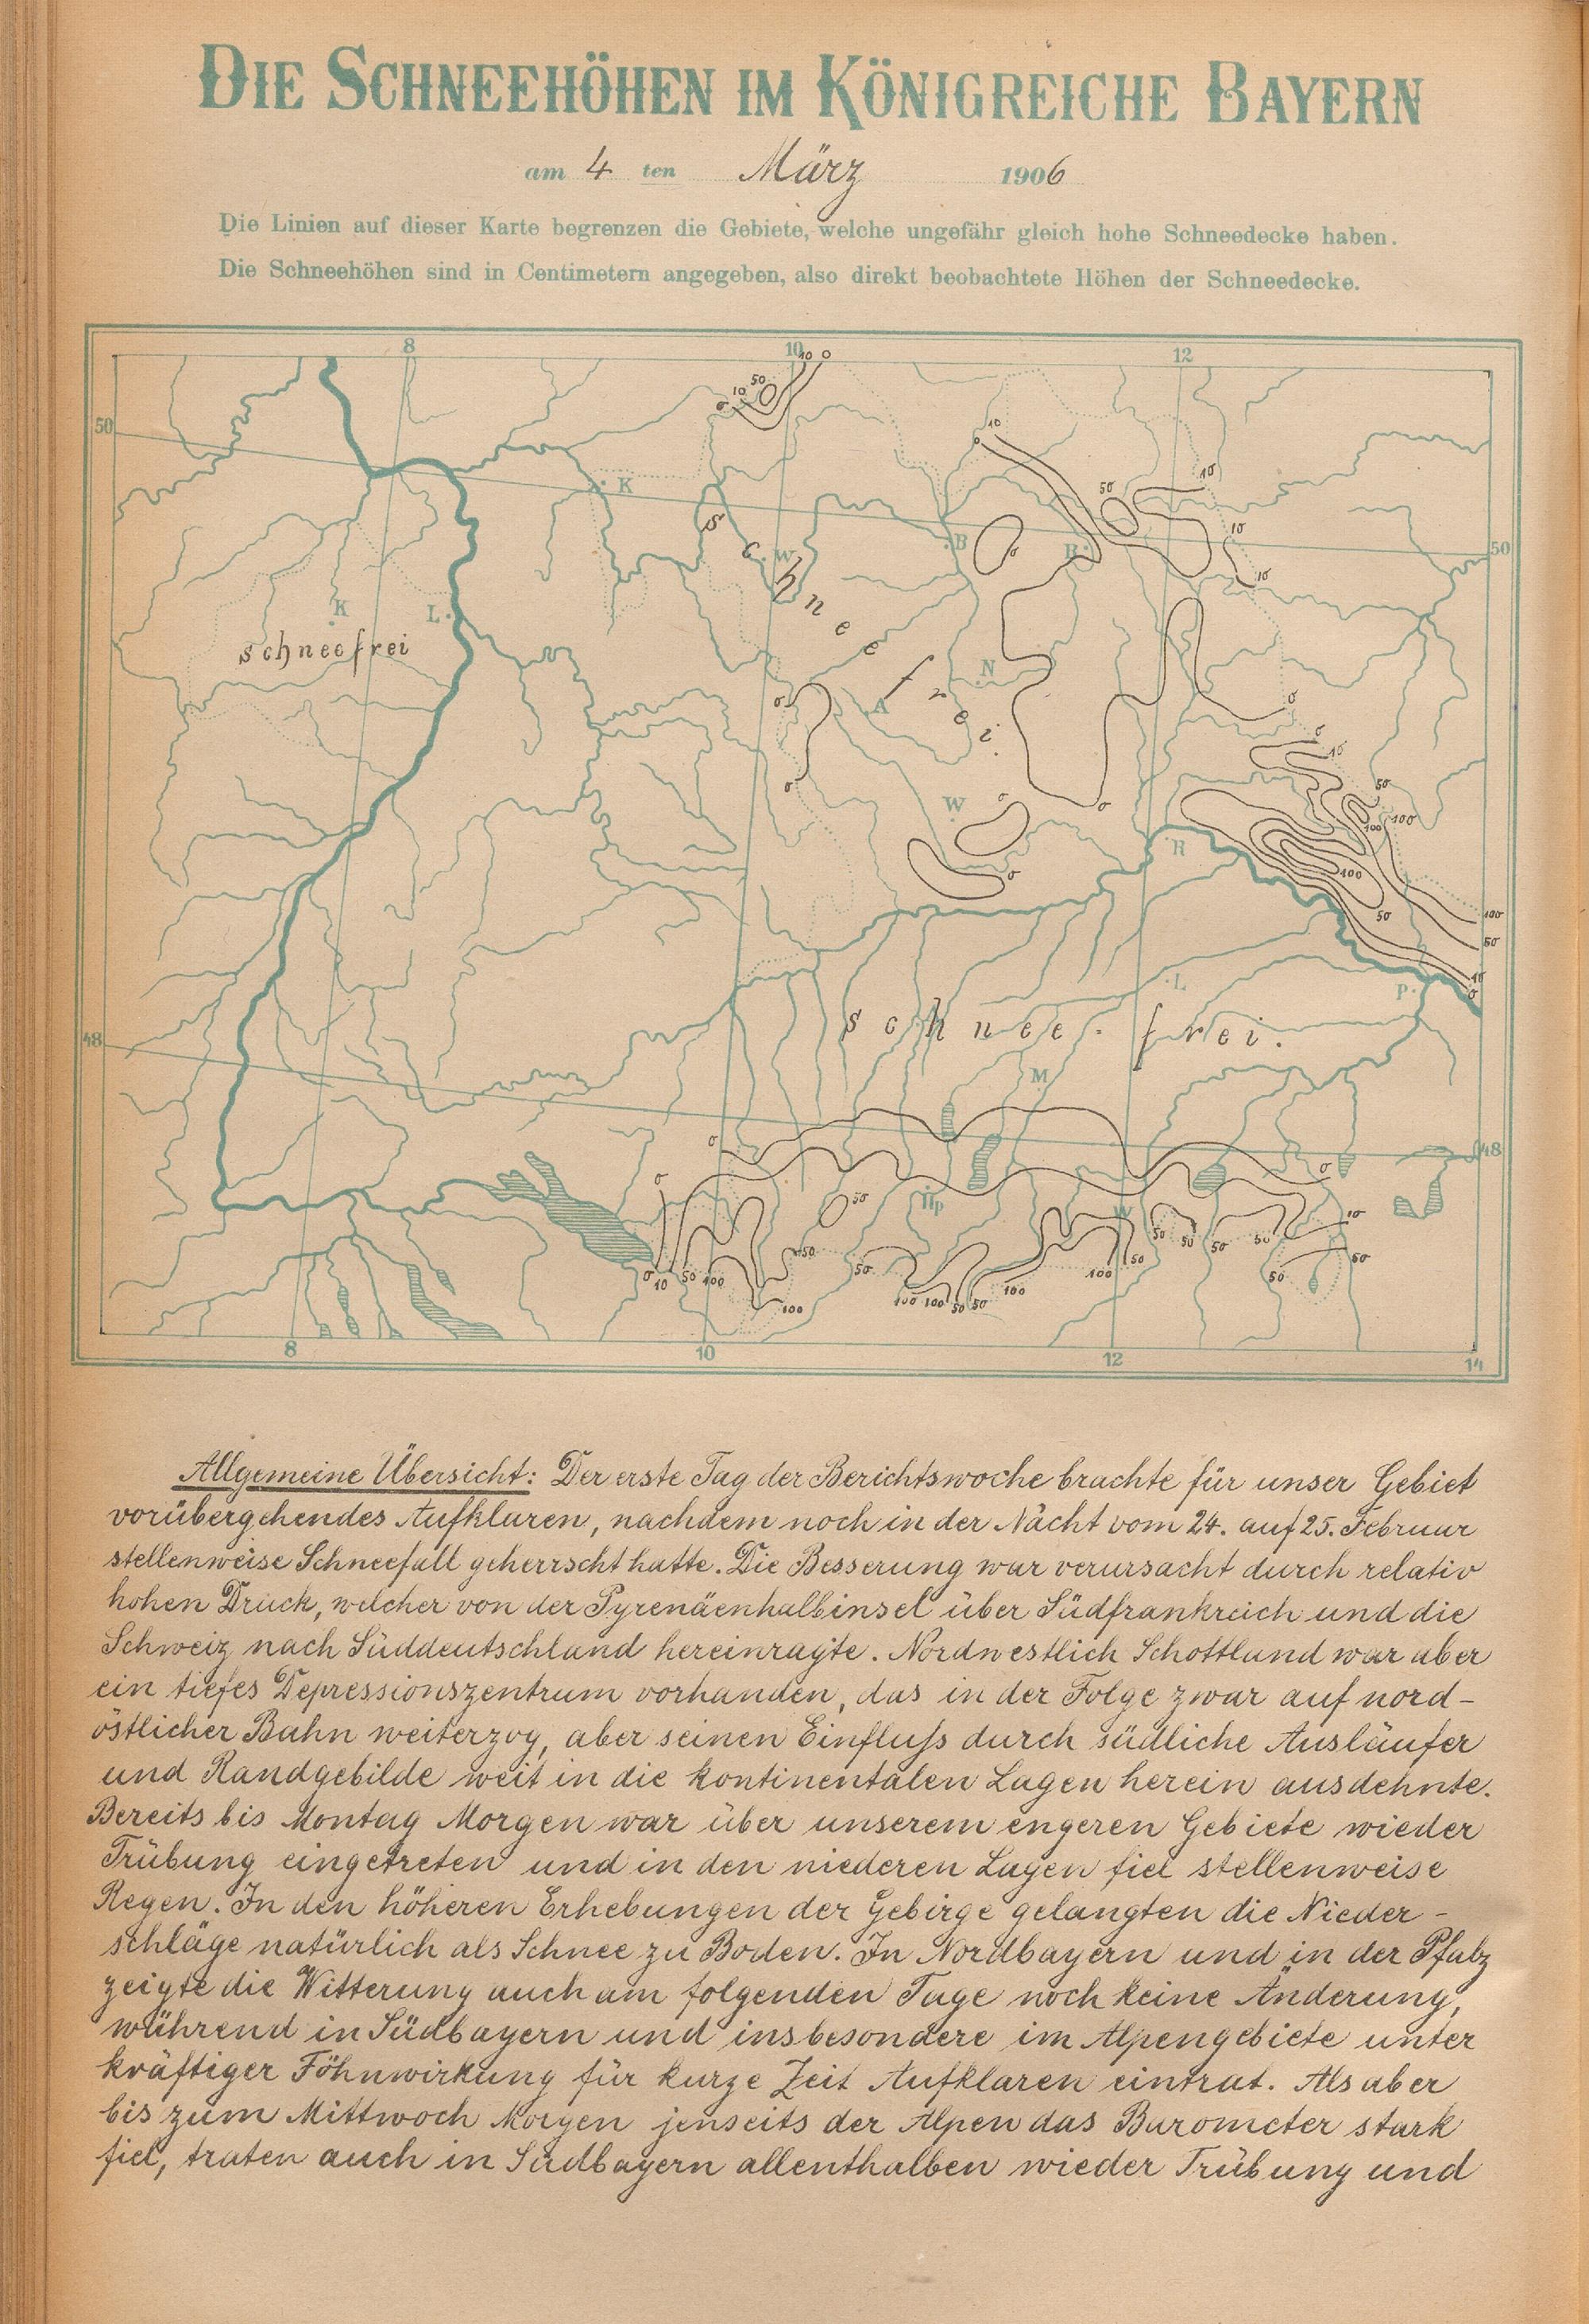 DIE SCHNEEHÖHEN IM KÖNIGREICHE BAYERN
am 4 ten März 1906
Die Linien auf dieser Karte begrenzen die Gebiete, welche ungefähr gleich hohe Schneedecke haben.
Die Schneehöhen sind in Centimetern angegeben, also direkt beobachtete Höhen der Schneedecke.
8 10 12
10 0
50
10 50
0
10
0
50
K
50 10
Schneefrei
B
0
R
10
50
W
10
K
L
schneefrei
N
A
0
0
0
10
0
W
0
0
50
100 100
R
0
100
50
100
50
10
0
L
P
schnee-frei.
48
M
48
0
0
0
50
Hp
W
10
50 50 50 50
50
50
50
50
100
50
0 10 50 100
100
100 100 50 50
100
8 10 12 14
Allgemeine Übersicht: Der erste Tag der Berichtswoche brachte für unser Gebiet
vorübergehendes Aufklaren, nachdem noch in der Nacht vom 24. auf 25. Februar
stellenweise Schneefall geherrscht hatte. Die Besserung war verursacht durch relativ
hohen Druck, welcher von der Pyrenäenhalbinsel über Südfrankreich und die
Schweiz nach Süddeutschland hereinragte. Nordwestlich Schottland war aber
ein tiefes Depressionszentrum vorhanden, das in der Folge zwar auf nord-
östlicher Bahn weiterzog, aber seinen Einfluß durch südliche Ausläufer
und Randgebilde weit in die kontinentalen Lagen herein ausdehnte.
Bereits bis Montag Morgen war über unserem engeren Gebiete wieder
Trübung eingetreten und in den niederen Lagen fiel stellenweise
Regen. In den höheren Erhebungen der Gebirge gelangten die Nieder-
schläge natürlich als Schnee zu Boden. In Nordbayern und in der Pfalz
zeigte die Witterung auch am folgenden Tage noch keine Änderung,
während in Südbayern und insbesondere im Alpengebiete unter
kräftiger Föhnwirkung für kurze Zeit Aufklaren eintrat. Als aber
bis zum Mittwoch Morgen jenseits der Alpen das Barometer stark
fiel, traten auch in Südbayern allenthalben wieder Trübung und